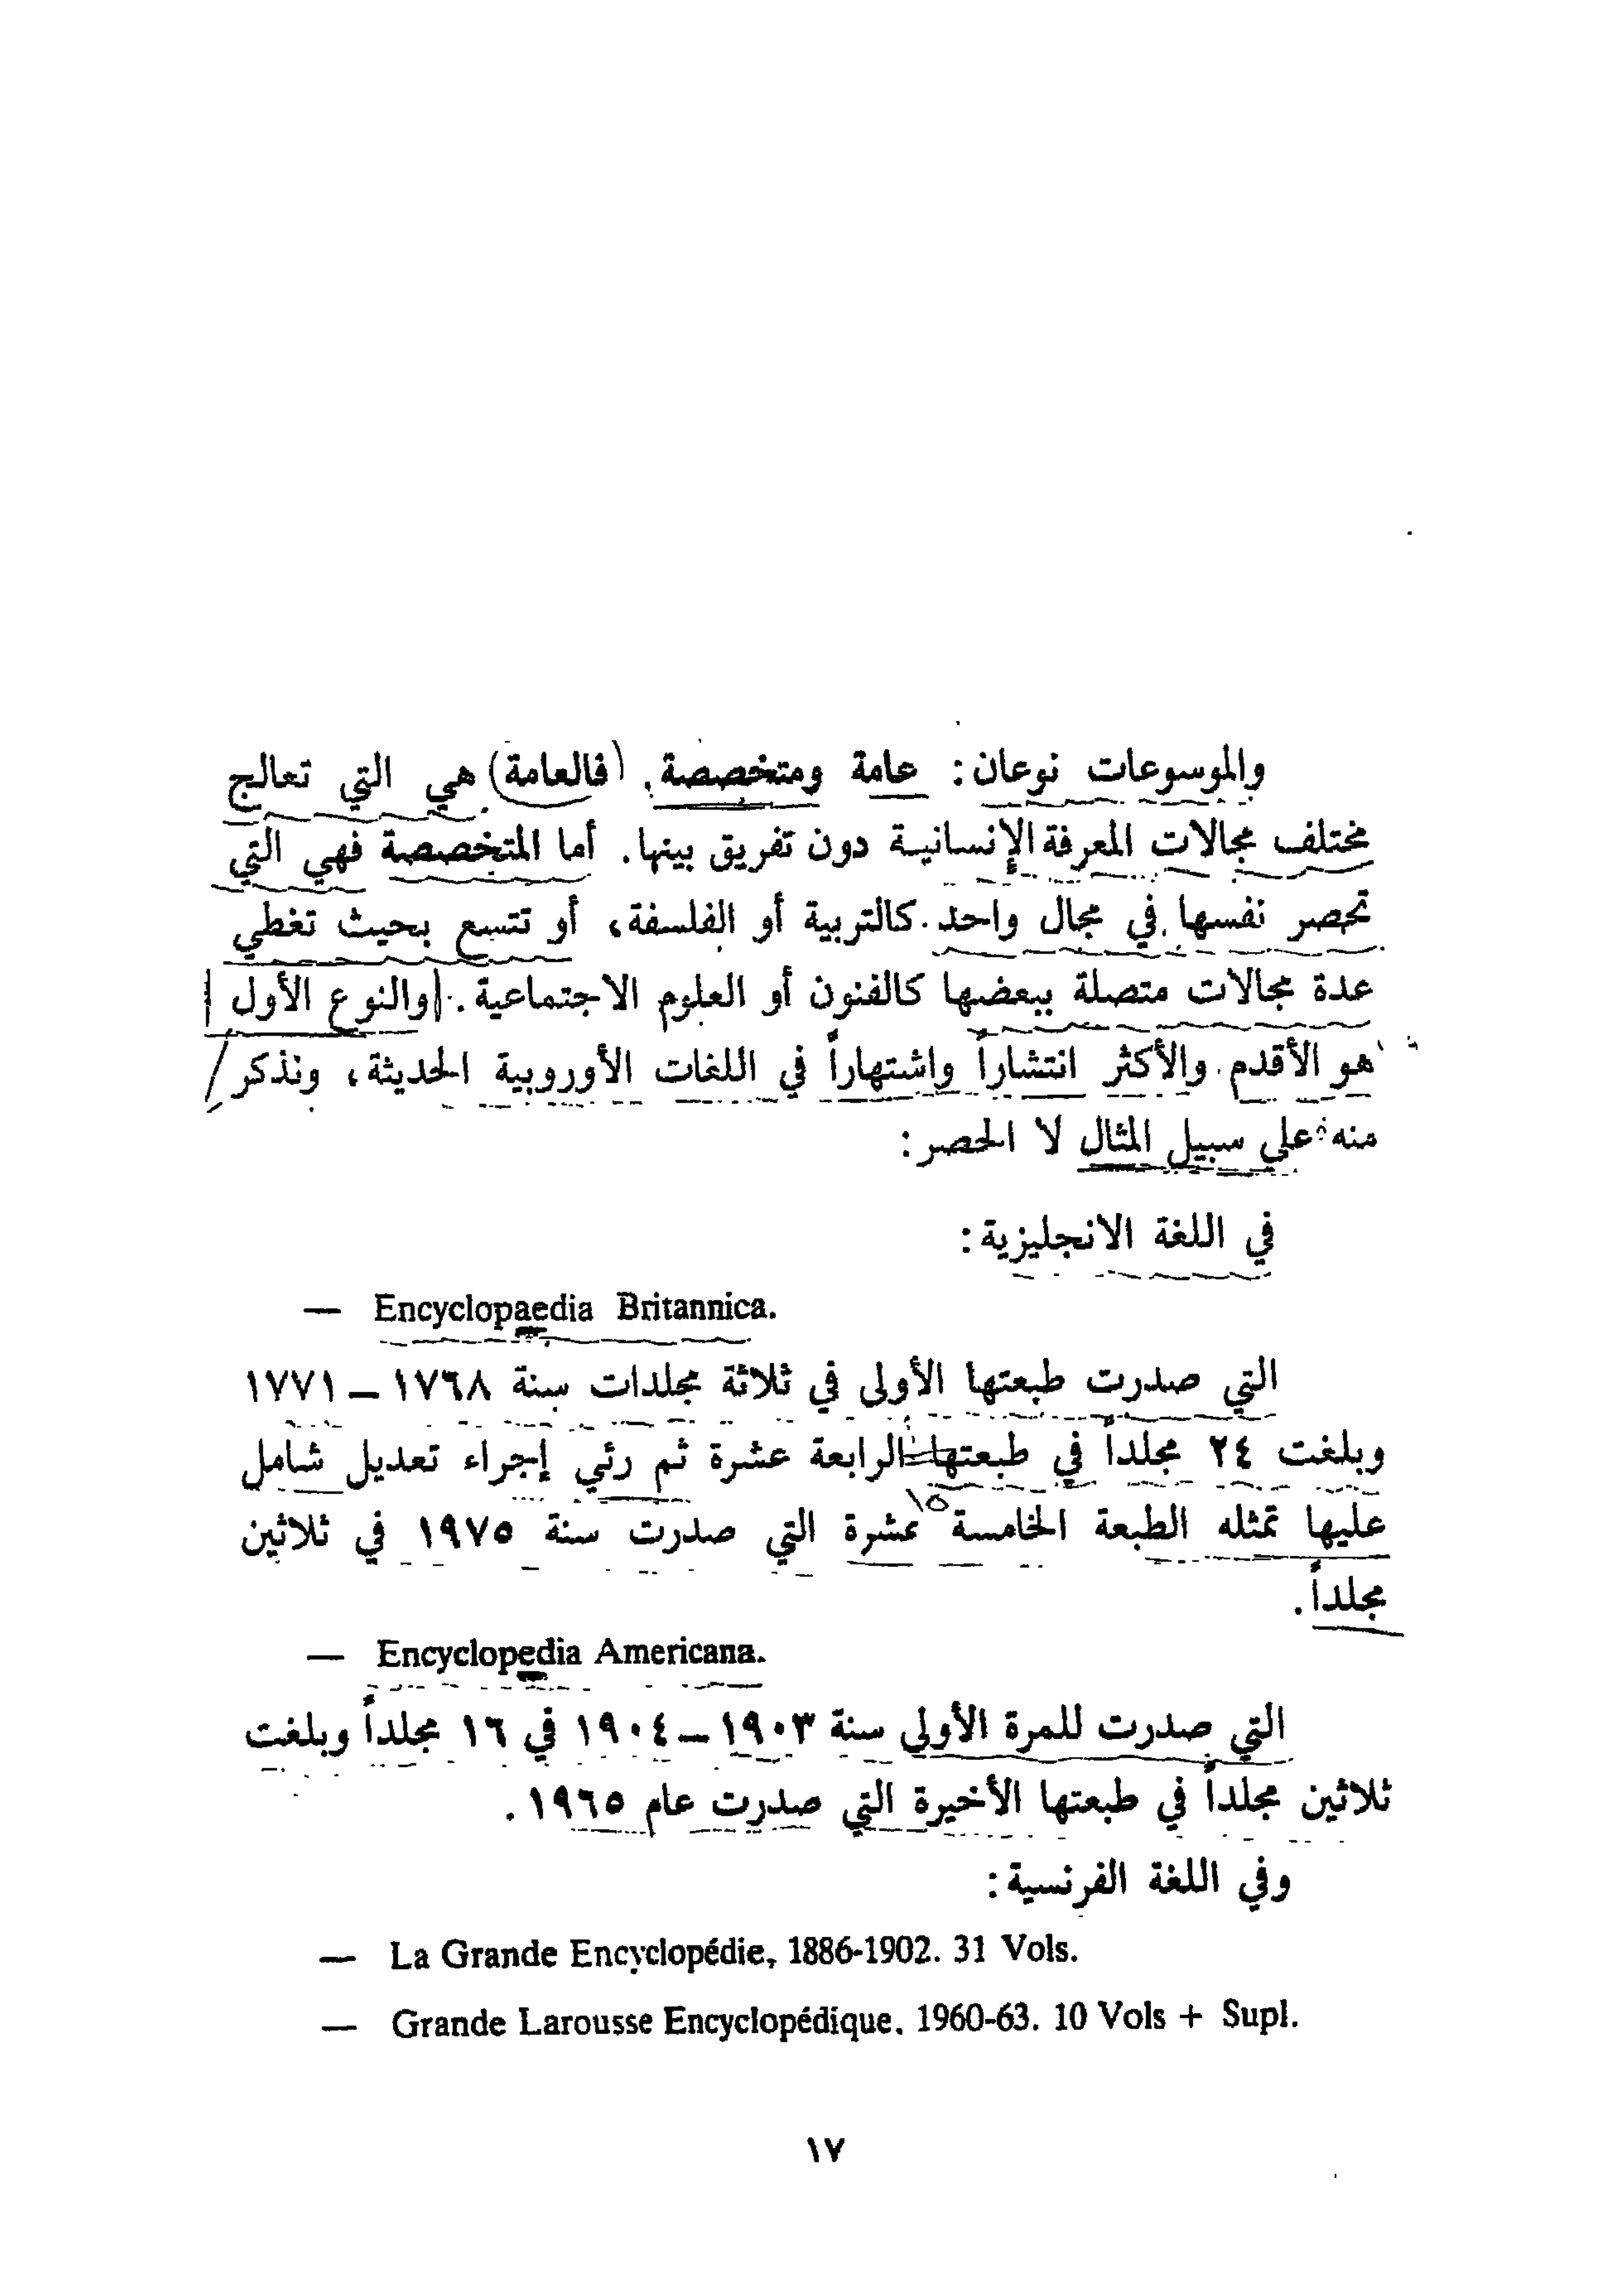 والموسوعات نوعان: عامة ومتخصصة. (فالعامة) هي التي تعالج
مختلف مجالات المعرفة الإنسانية دون تفريق بينها. أما المتخصصة فهي التي
تحصر نفسها في مجال واحد كالتربية أو الفلسفة، أو تتسع بحيث تغطي
عدة مجالات متصلة ببعضها كالفنون أو العلوم الاجتماعية. والنوع الأول
هو الأقدم والأكثر انتشاراً واشتهاراً في اللغات الأوروبية الحديثة، ونذكر
منه على سبيل المثال لا الحصر:
في اللغة الانجليزية:
— Encyclopaedia Britannica.
التي صدرت طبعتها الأولى في ثلاثة مجلدات سنة ١٧٦٨ — ١٧٧١
وبلغت ٢٤ مجلداً في طبعتها الرابعة عشرة ثم رئي إجراء تعديل شامل
١٥
عليها تمثله الطبعة الخامسة عشرة التي صدرت سنة ١٩٧٥ في ثلاثين
مجلداً.
— Encyclopedia Americana.
التي صدرت للمرة الأولى سنة ١٩٠٣ — ١٩٠٤ في ١٦ مجلداً وبلغت
ثلاثين مجلداً في طبعتها الأخيرة التي صدرت عام ١٩٦٥.
وفي اللغة الفرنسية:
— La Grande Encyclopédie, 1886-1902. 31 Vols.
— Grande Larousse Encyclopédique. 1960-63. 10 Vols + Supl.
١٧